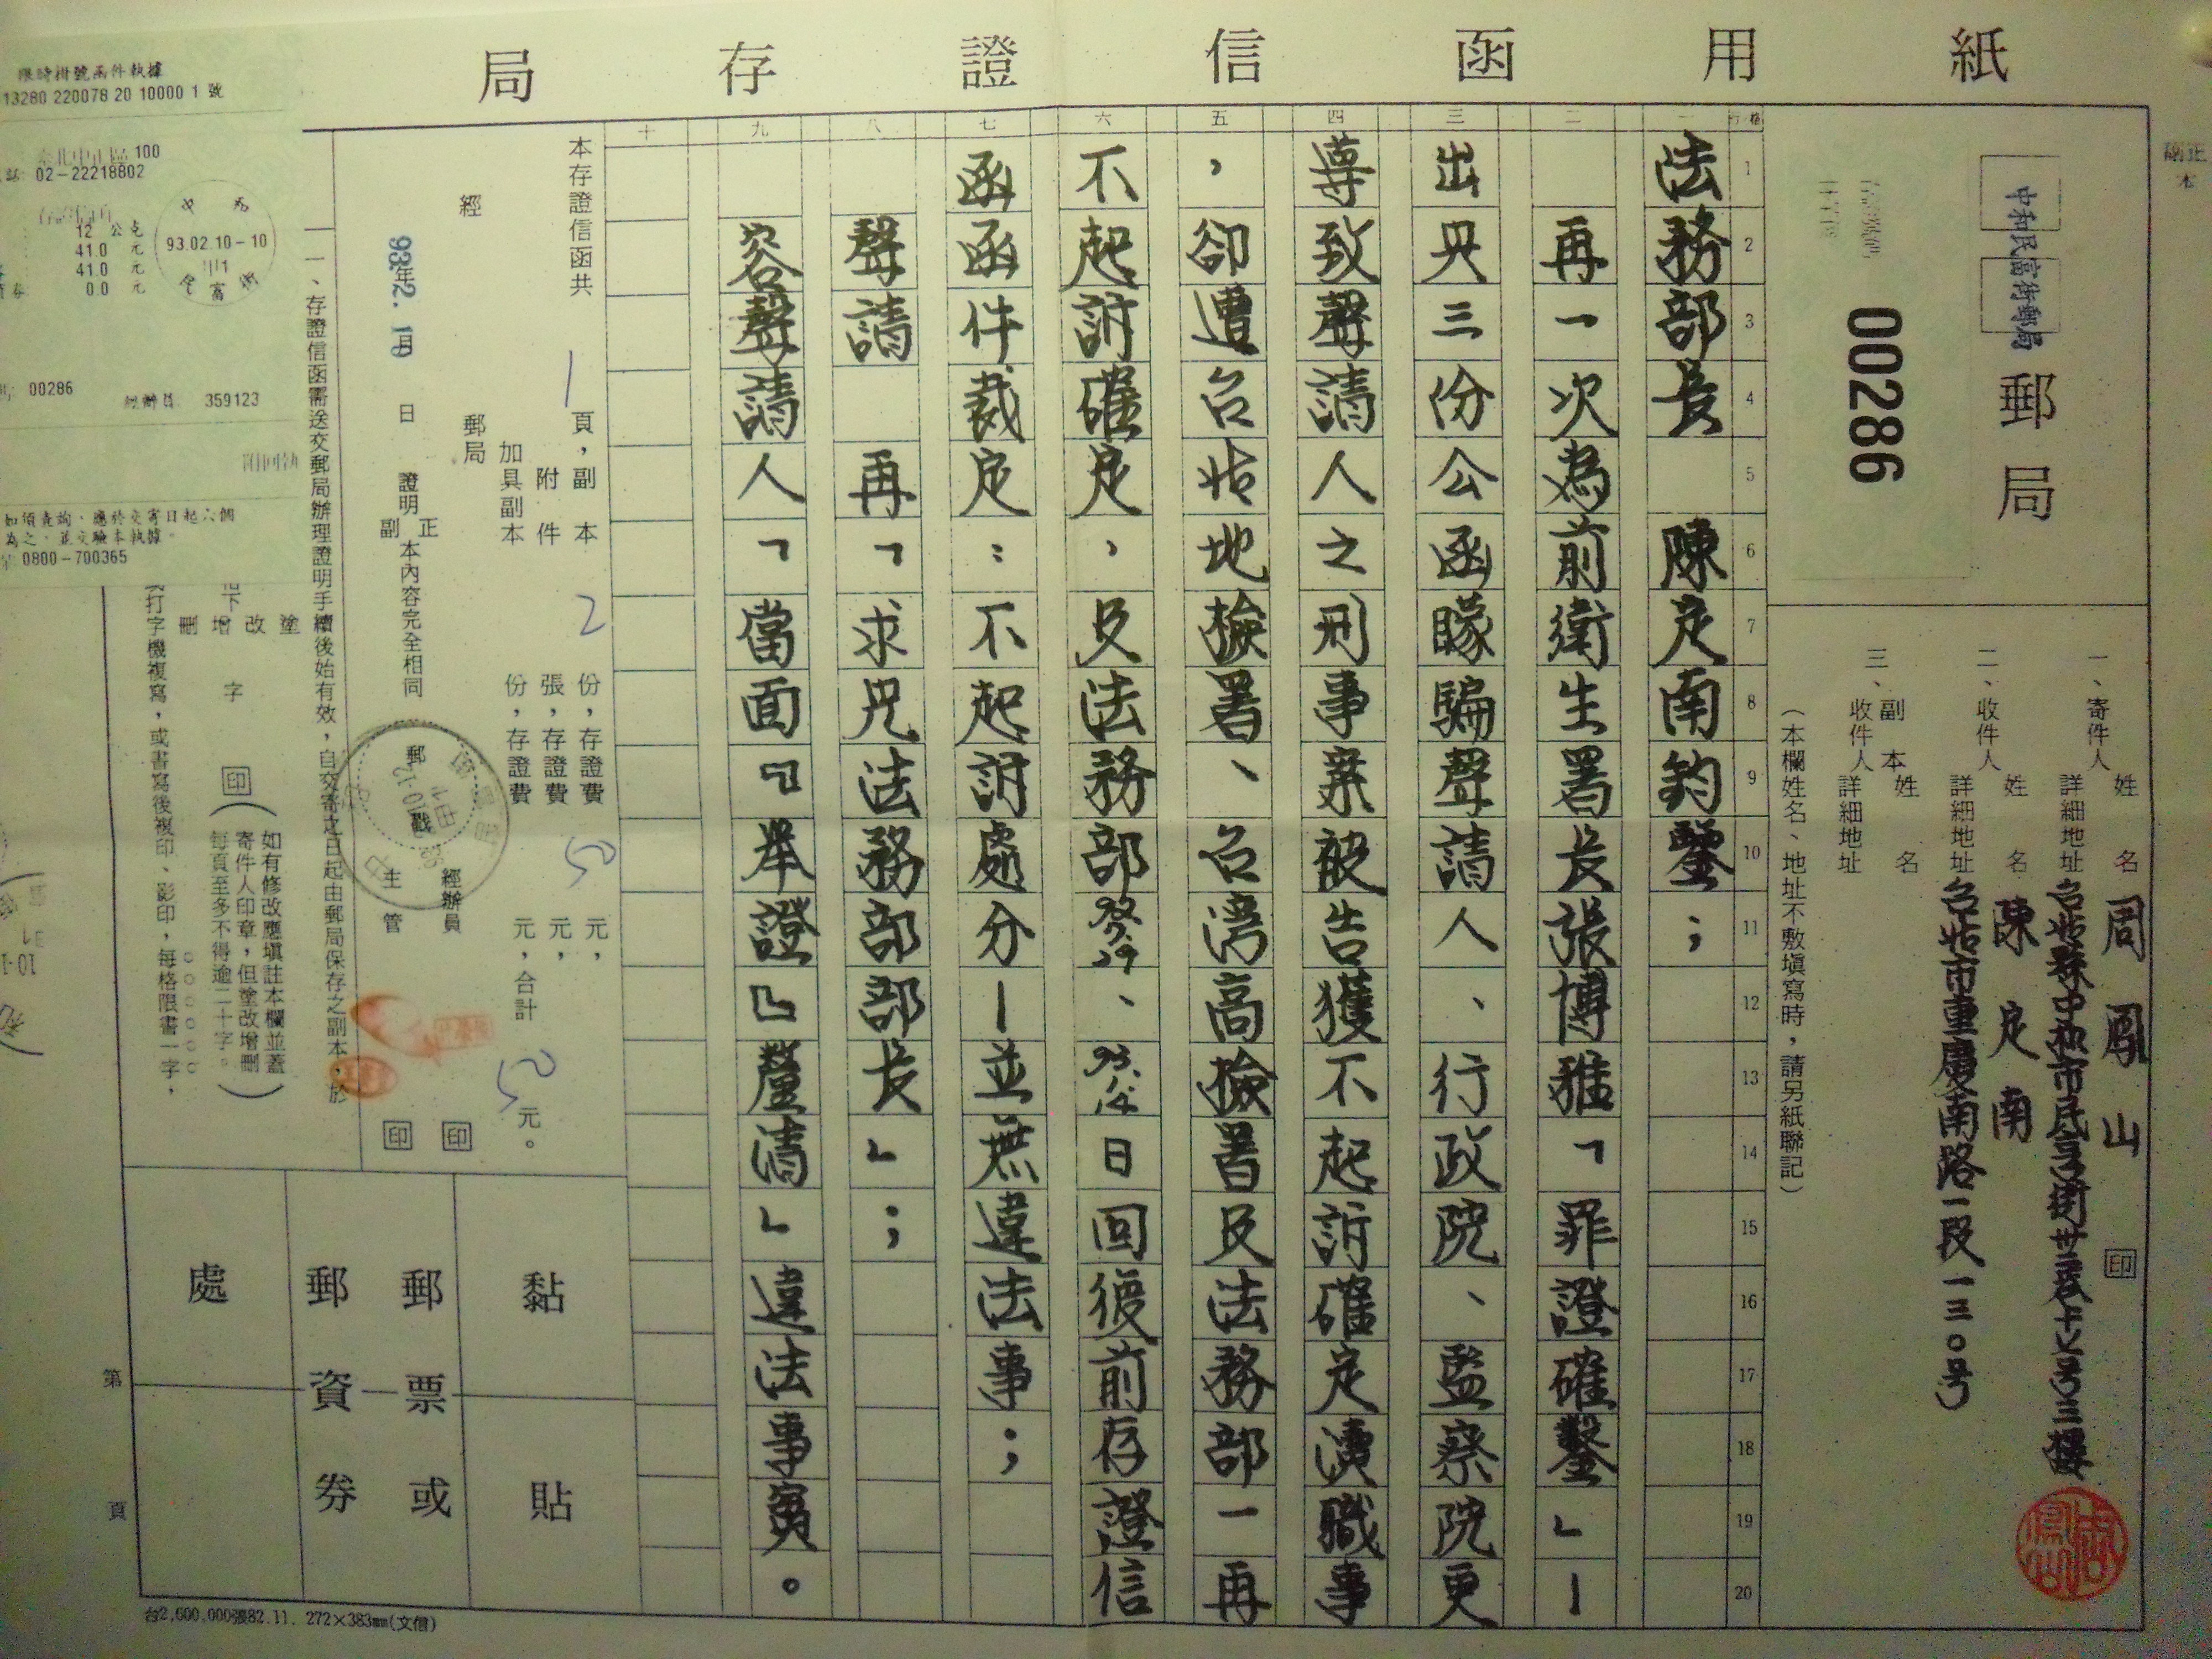 局存證信函用紙
副正本
中和民富街郵局
郵局
00286
一、寄件人 姓名 周鳳山 印
詳細地址 台北縣中和市民富街廿巷十七号三樓
二、收件人 姓名 陳定南
詳細地址 台北市重慶南路一段一三0号
三、副本收件人 姓名
詳細地址
(本欄姓名、地址不敷填寫時,請另紙聯記)
行格 1 2 3 4 5 6 7 8 9 10 11 12 13 14 15 16 17 18 19 20
一 法務部長 陳定南鈞鑒;
二 再一次為前衛生署長張博雅「罪證確鑿」—
三 出具三份公函矇騙聲請人、行政院、監察院更
四 導致聲請人之刑事案被告獲不起訴確定瀆職事
五 ,卻遭台北地檢署、台灣高檢署及法務部一再
六 不起訴確定,及法務部92.7.29、93.1.14日回復前存證信
七 函函件裁定:不起訴處分—並無違法事;
八 聲請 再「求咒法務部部長」;
九 容聲請人「當面『舉證』釐清」違法事實。
十
本存證信函共 1 頁,副本 2 份,存證費 50 元,
附件 張,存證費 元,
加具副本 份,存證費 元,合計 50 元。
經 郵局
93年2.10月 日 證明 正副 本內容完全相同
郵戳
經辦員 印
主管 印
一、存證信函需送交郵局辦理證明手續後始有效,自交寄之日起由郵局保存之副本,於
塗改增刪 字 印 (如有修改應填註本欄並蓋寄件人印章,但塗改增刪每頁至多不得逾二十字。)
(打字機複寫,或書寫後複印、影印,每格限書一字,
黏貼
郵票或
郵資券
處
第 頁
台2,600,000張82.11. 272×383mm(文信)
限時掛號函件執據
13280 220078 20 10000 1 號
100
02-22218802
12 公克
41.0 元
41.0 元
0.0 元
93.02.10-10
00286
經辦員 359123
附回執
如須查詢,應於交寄日起六個
為之,並交驗本執據。
0800-700365